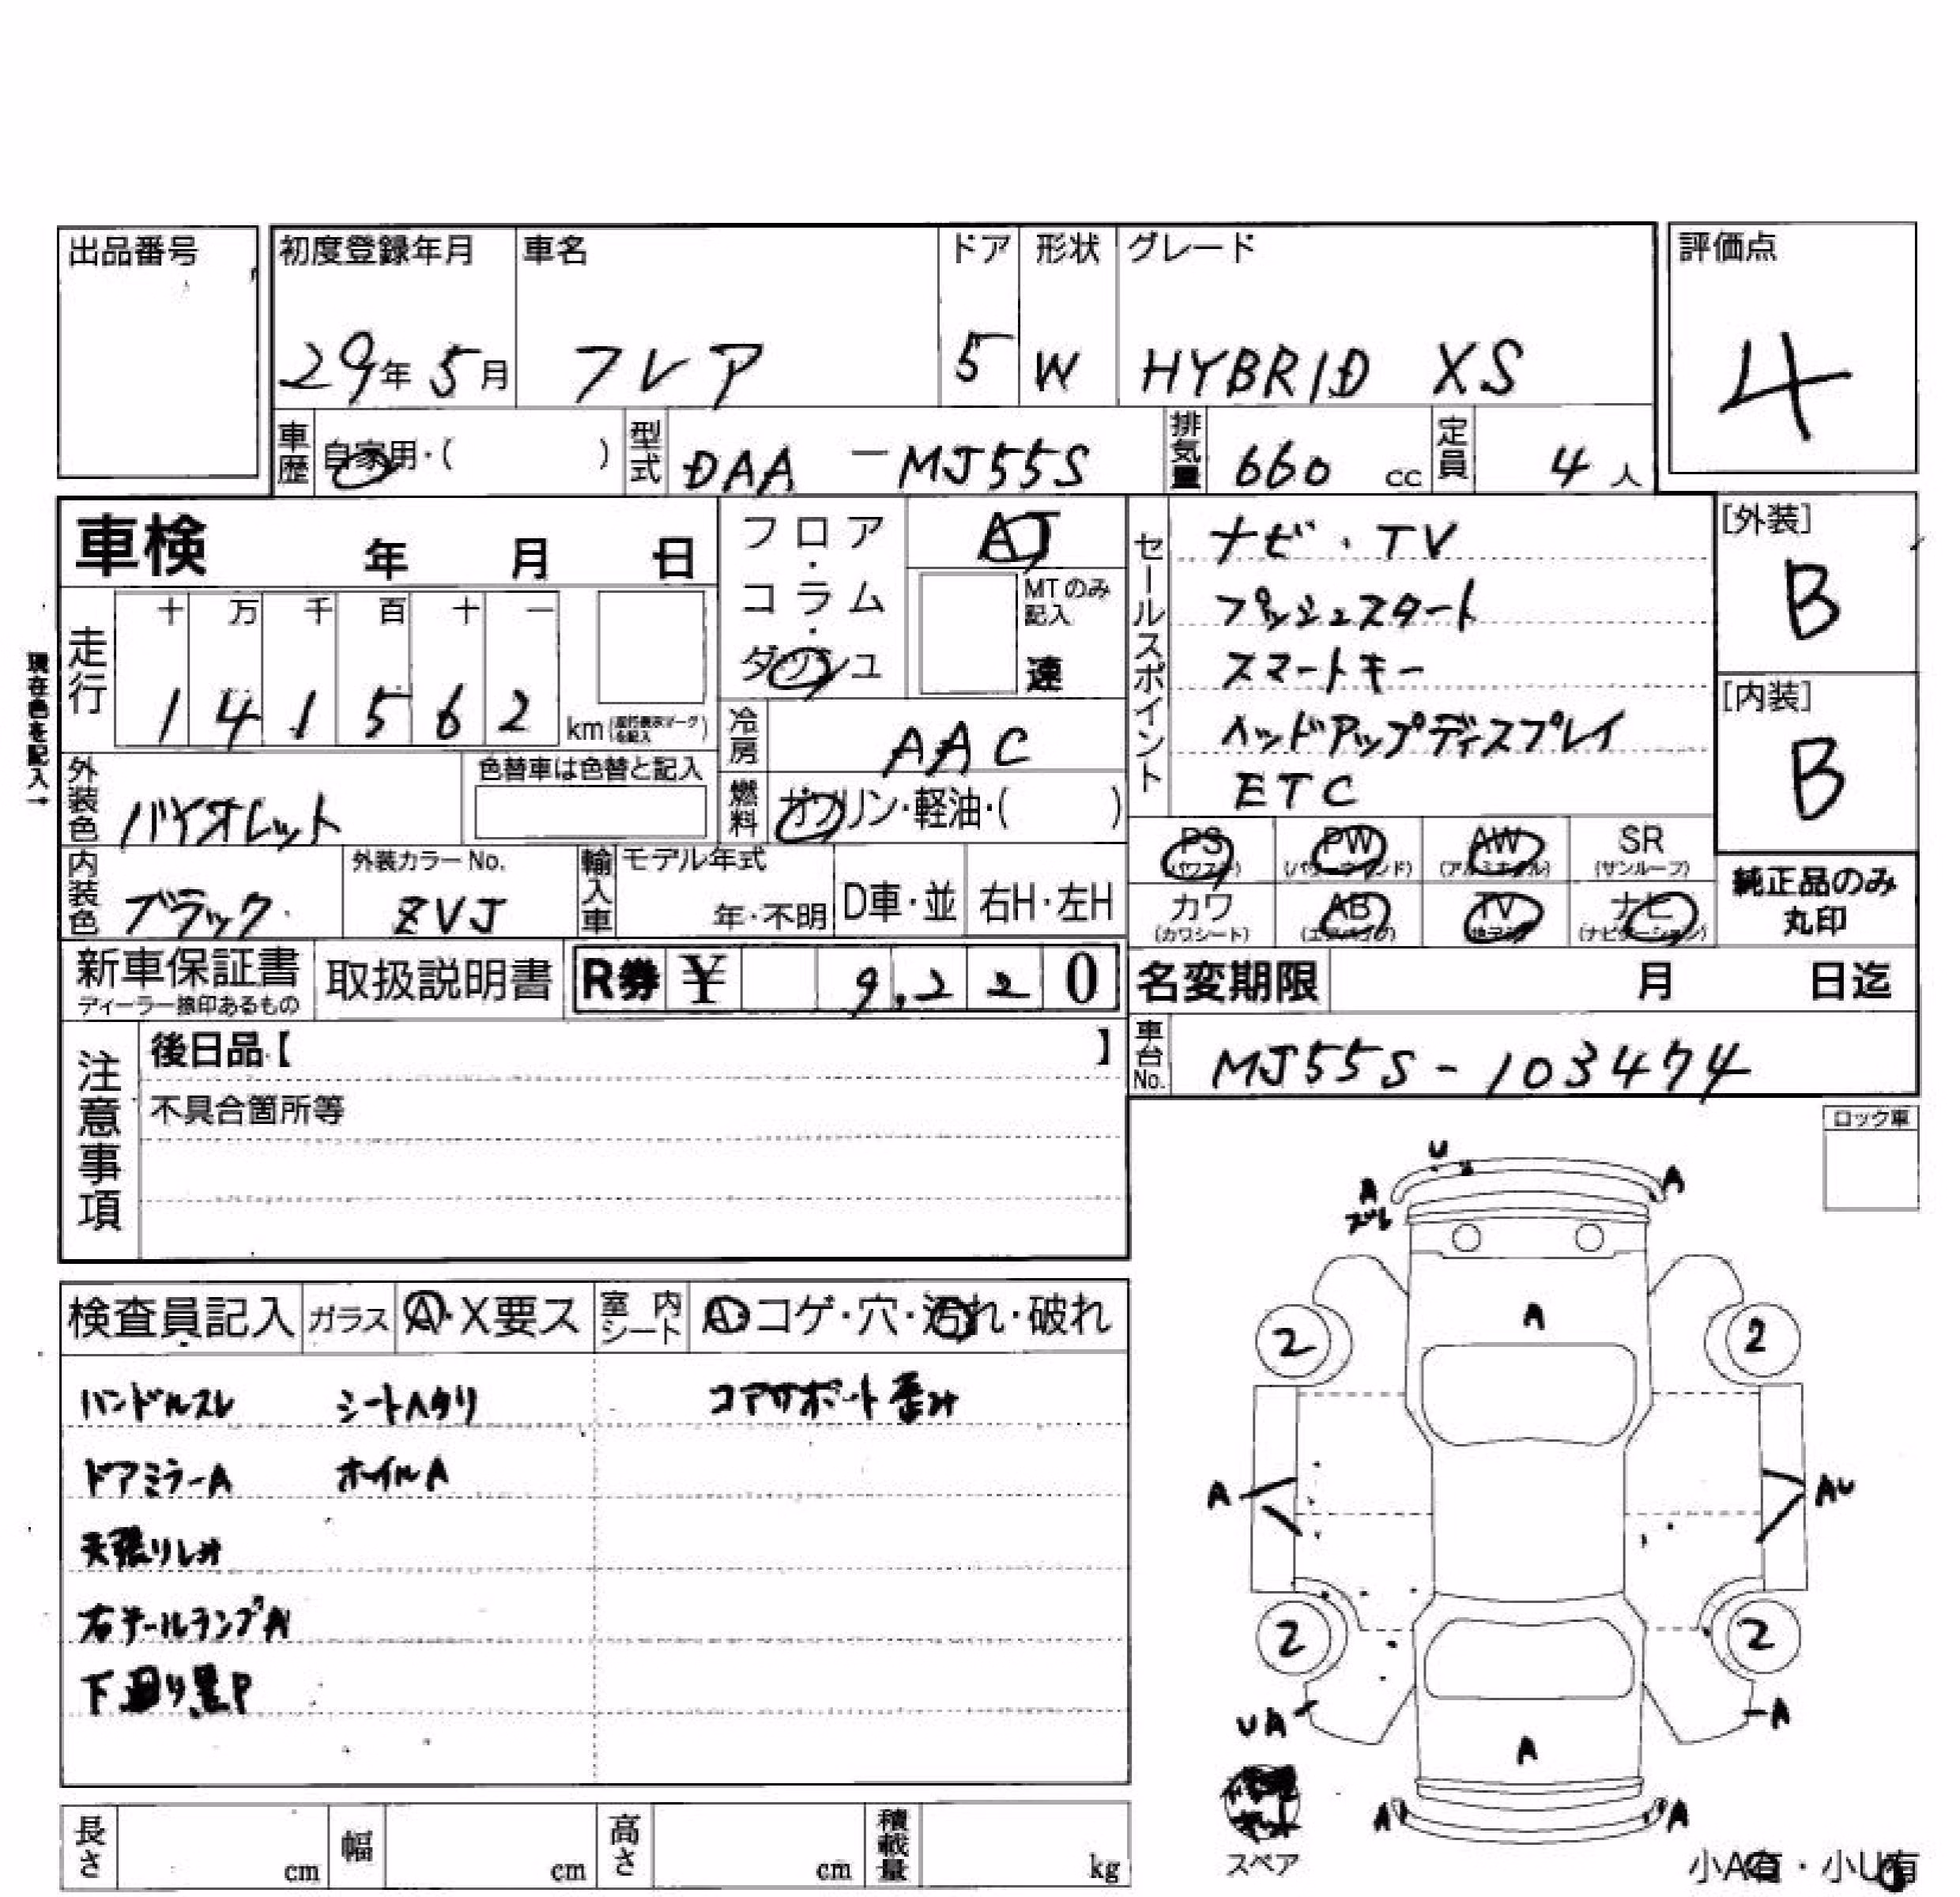 出品番号
初度登録年月 車名 ドア 形状 グレード 評価点
29年 5月 フレア 5 W HYBRID XS 4
車歴 自家用・( ) 型式 DAA - MJ55S 排気量 660 cc 定員 4 人
車検 年 月 日
フロア・コラム・ダッシュ
AT
MTのみ記入 速
走行 十 万 千 百 十 一
1 4 1 5 6 2 km
現在色を記入→
冷房 AAC
燃料 ガソリン・軽油・( )
セールスポイント
ナビ・TV
プッシュスタート
スマートキー
ヘッドアップディスプレイ
ETC
[外装]
B
[内装]
B
外装色 バイオレット 色替車は色替と記入
内装色 ブラック 外装カラーNo. ZVJ 輸入車 モデル年式 年・不明 D車・並 右H・左H
PS PW AW SR
(パワステ) (パワーウィンド) (アルミホイル) (サンルーフ)
カワ AB TV ナビ
(カワシート) (エアバッグ) (ナビゲーション)
純正品のみ
丸印
新車保証書 取扱説明書 R券 ¥ 9,220
ディーラー捺印あるもの
名変期限 月 日迄
車台No. MJ55S-103474
注意事項
後日品【 】
不具合箇所等
ロック車
検査員記入 ガラス A・X要ス 室内シート A・コゲ・穴・汚れ・破れ
ハンドルスレ シートヘタリ コアサポート歪み
ドアミラーA ホイルA
天張りしみ
右テールランプA
下廻り黒P
U
A A
ズレ
A
2 2
A AU
2 2
UA A
A
A A
スペア
小A有・小U有
長さ cm 幅 cm 高さ cm 積載量 kg